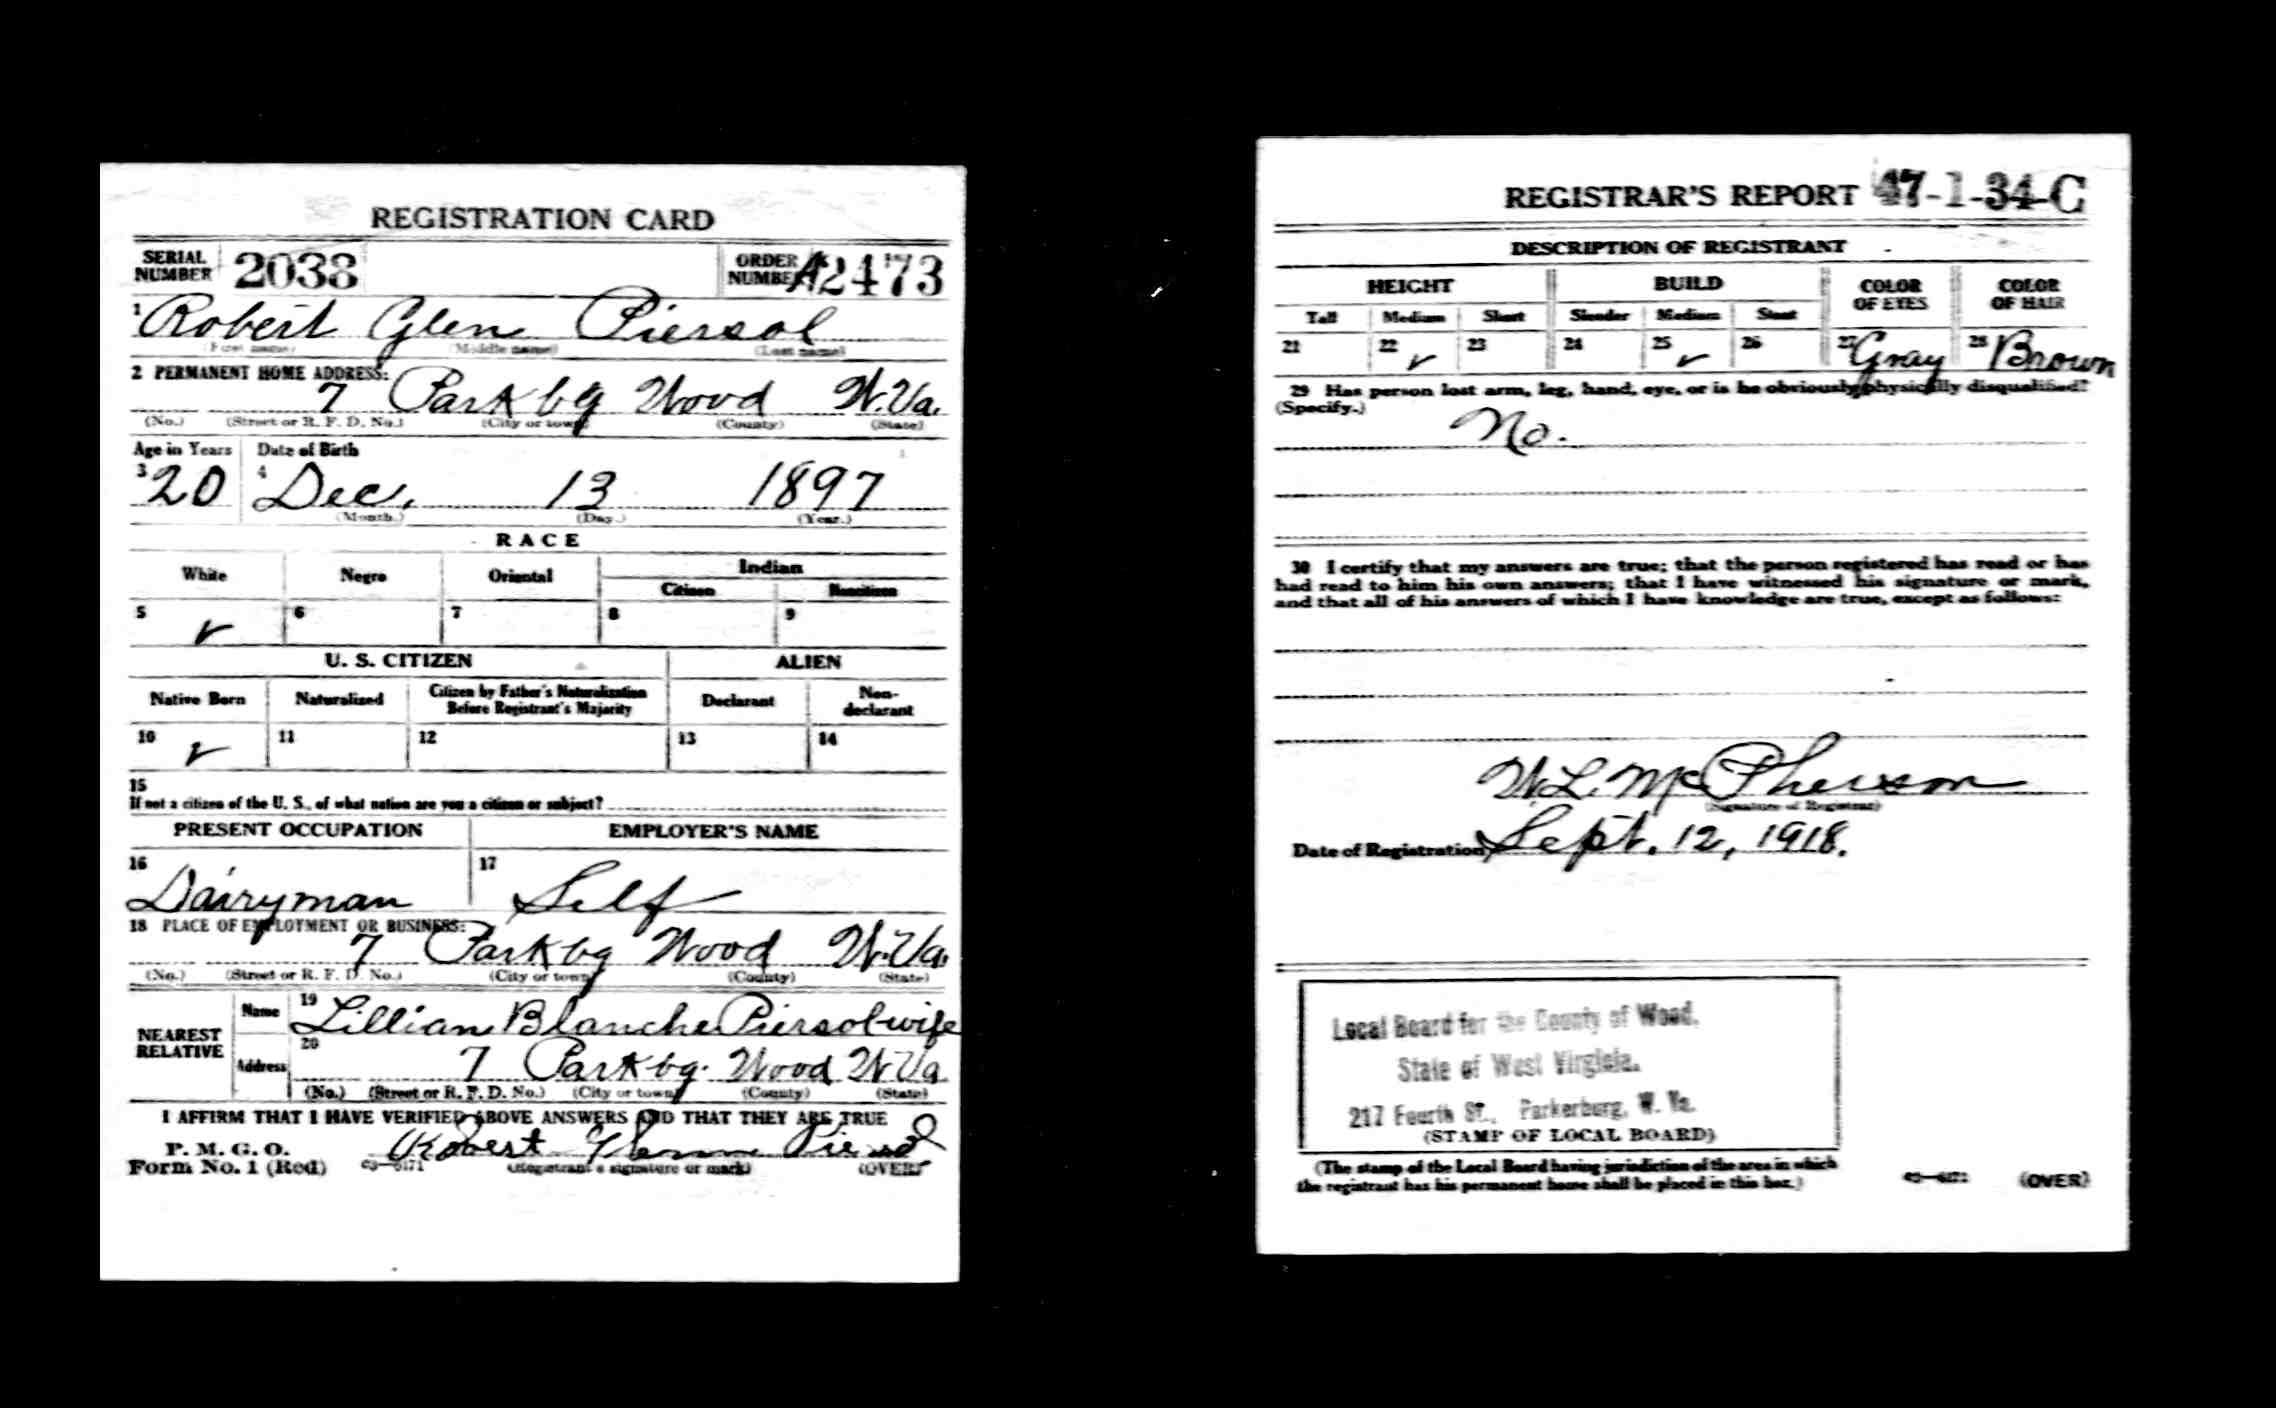 REGISTRATION CARD
SERIAL NUMBER 2038 ORDER NUMBER A2473
1 Robert Glen Piersol
(First name) (Middle name) (Last name)
2 PERMANENT HOME ADDRESS:
7 Parkbg Wood W.Va.
(No.) (Street or R. F. D. No.) (City or town) (County) (State)
Age in Years Date of Birth
3 20 4 Dec. 13 1897
(Month.) (Day.) (Year.)
RACE
White Negro Oriental Indian
Citizen Noncitizen
5 ✓ 6 7 8 9
U. S. CITIZEN ALIEN
Native Born Naturalized Citizen by Father's Naturalization Before Registrant's Majarity Declarant Non-declarant
10 ✓ 11 12 13 14
15
If not a citizen of the U. S., of what nation are you a citizen or subject?
PRESENT OCCUPATION EMPLOYER'S NAME
16 Dairyman 17 Self
18 PLACE OF EMPLOYMENT OR BUSINESS:
7 Parkbg Wood W.Va.
(No.) (Street or R. F. D. No.) (City or town) (County) (State)
NEAREST RELATIVE
Name 19 Lillian Blanche Piersol wife
Address 20 7 Parkbg. Wood W.Va
(No.) (Street or R. F. D. No.) (City or town) (County) (State)
I AFFIRM THAT I HAVE VERIFIED ABOVE ANSWERS AND THAT THEY ARE TRUE
P. M. G. O.
Form No. 1 (Red) 03—6171 Robert Glenn Piersol
(Registrant's signature or mark) (OVER)
REGISTRAR'S REPORT 47-1-34-C
DESCRIPTION OF REGISTRANT
HEIGHT BUILD COLOR OF EYES COLOR OF HAIR
Tall Medium Short Slender Medium Stout
21 22 ✓ 23 24 25 ✓ 26 27 Gray 28 Brown
29 Has person lost arm, leg, hand, eye, or is he obviously physically disqualified?
(Specify.)
No.
30 I certify that my answers are true; that the person registered has read or has
had read to him his own answers; that I have witnessed his signature or mark,
and that all of his answers of which I have knowledge are true, except as follows:
W. L. McPherson
(Signature of Registrar)
Date of Registration Sept. 12, 1918.
Local Board for the County of Wood.
State of West Virginia.
217 Fourth St., Parkerburg, W. Va.
(STAMP OF LOCAL BOARD)
(The stamp of the Local Board having jurisdiction of the area in which
the registrant has his permanent home shall be placed in this box.)
03—6171 (OVER)